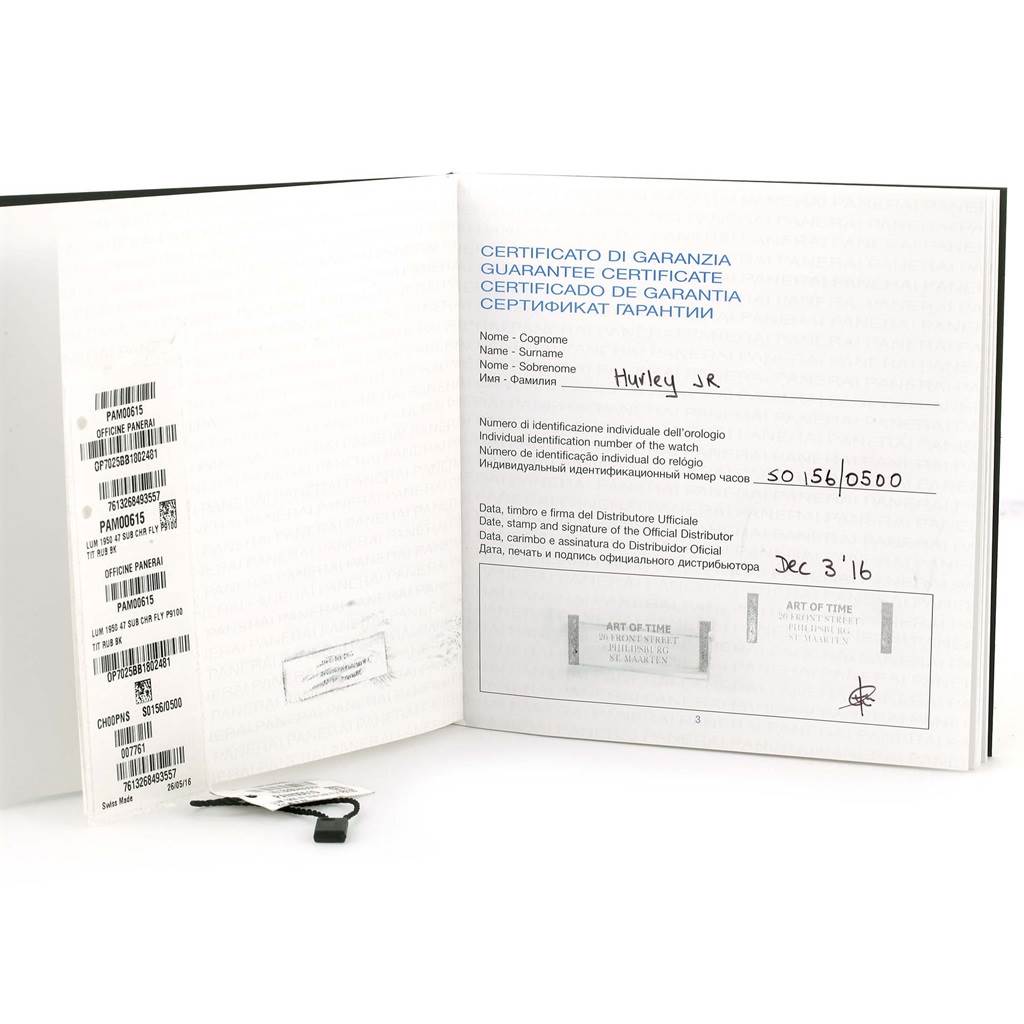 PAM00615
OFFICINE PANERAI
OP7025BB1802481
7613268493557
PAM00615
LUM 1950 47 SUB CHR FLY P9100
TIT RUB BK
OFFICINE PANERAI
PAM00615
LUM 1950 47 SUB CHR FLY P9100
TIT RUB BK
OP7025BB1802481
CH00PNS S0156/0500
007761
7613268493557
Swiss Made 26/05/16
CERTIFICATO DI GARANZIA
GUARANTEE CERTIFICATE
CERTIFICADO DE GARANTIA
СЕРТИФИКАТ ГАРАНТИИ
Nome - Cognome
Name - Surname
Nome - Sobrenome
Имя - Фамилия Hurley JR
Numero di identificazione individuale dell'orologio
Individual identification number of the watch
Número de identificação individual do relógio
Индивидуальный идентификационный номер часов SO 156/0500
Data, timbro e firma del Distributore Ufficiale
Date, stamp and signature of the Official Distributor
Data, carimbo e assinatura do Distribuidor Oficial
Дата, печать и подпись официального дистрибьютора Dec 3 '16
ART OF TIME
20 FRONT STREET
PHILIPSBURG
ST. MAARTEN
ART OF TIME
20 FRONT STREET
PHILIPSBURG
ST. MAARTEN
3